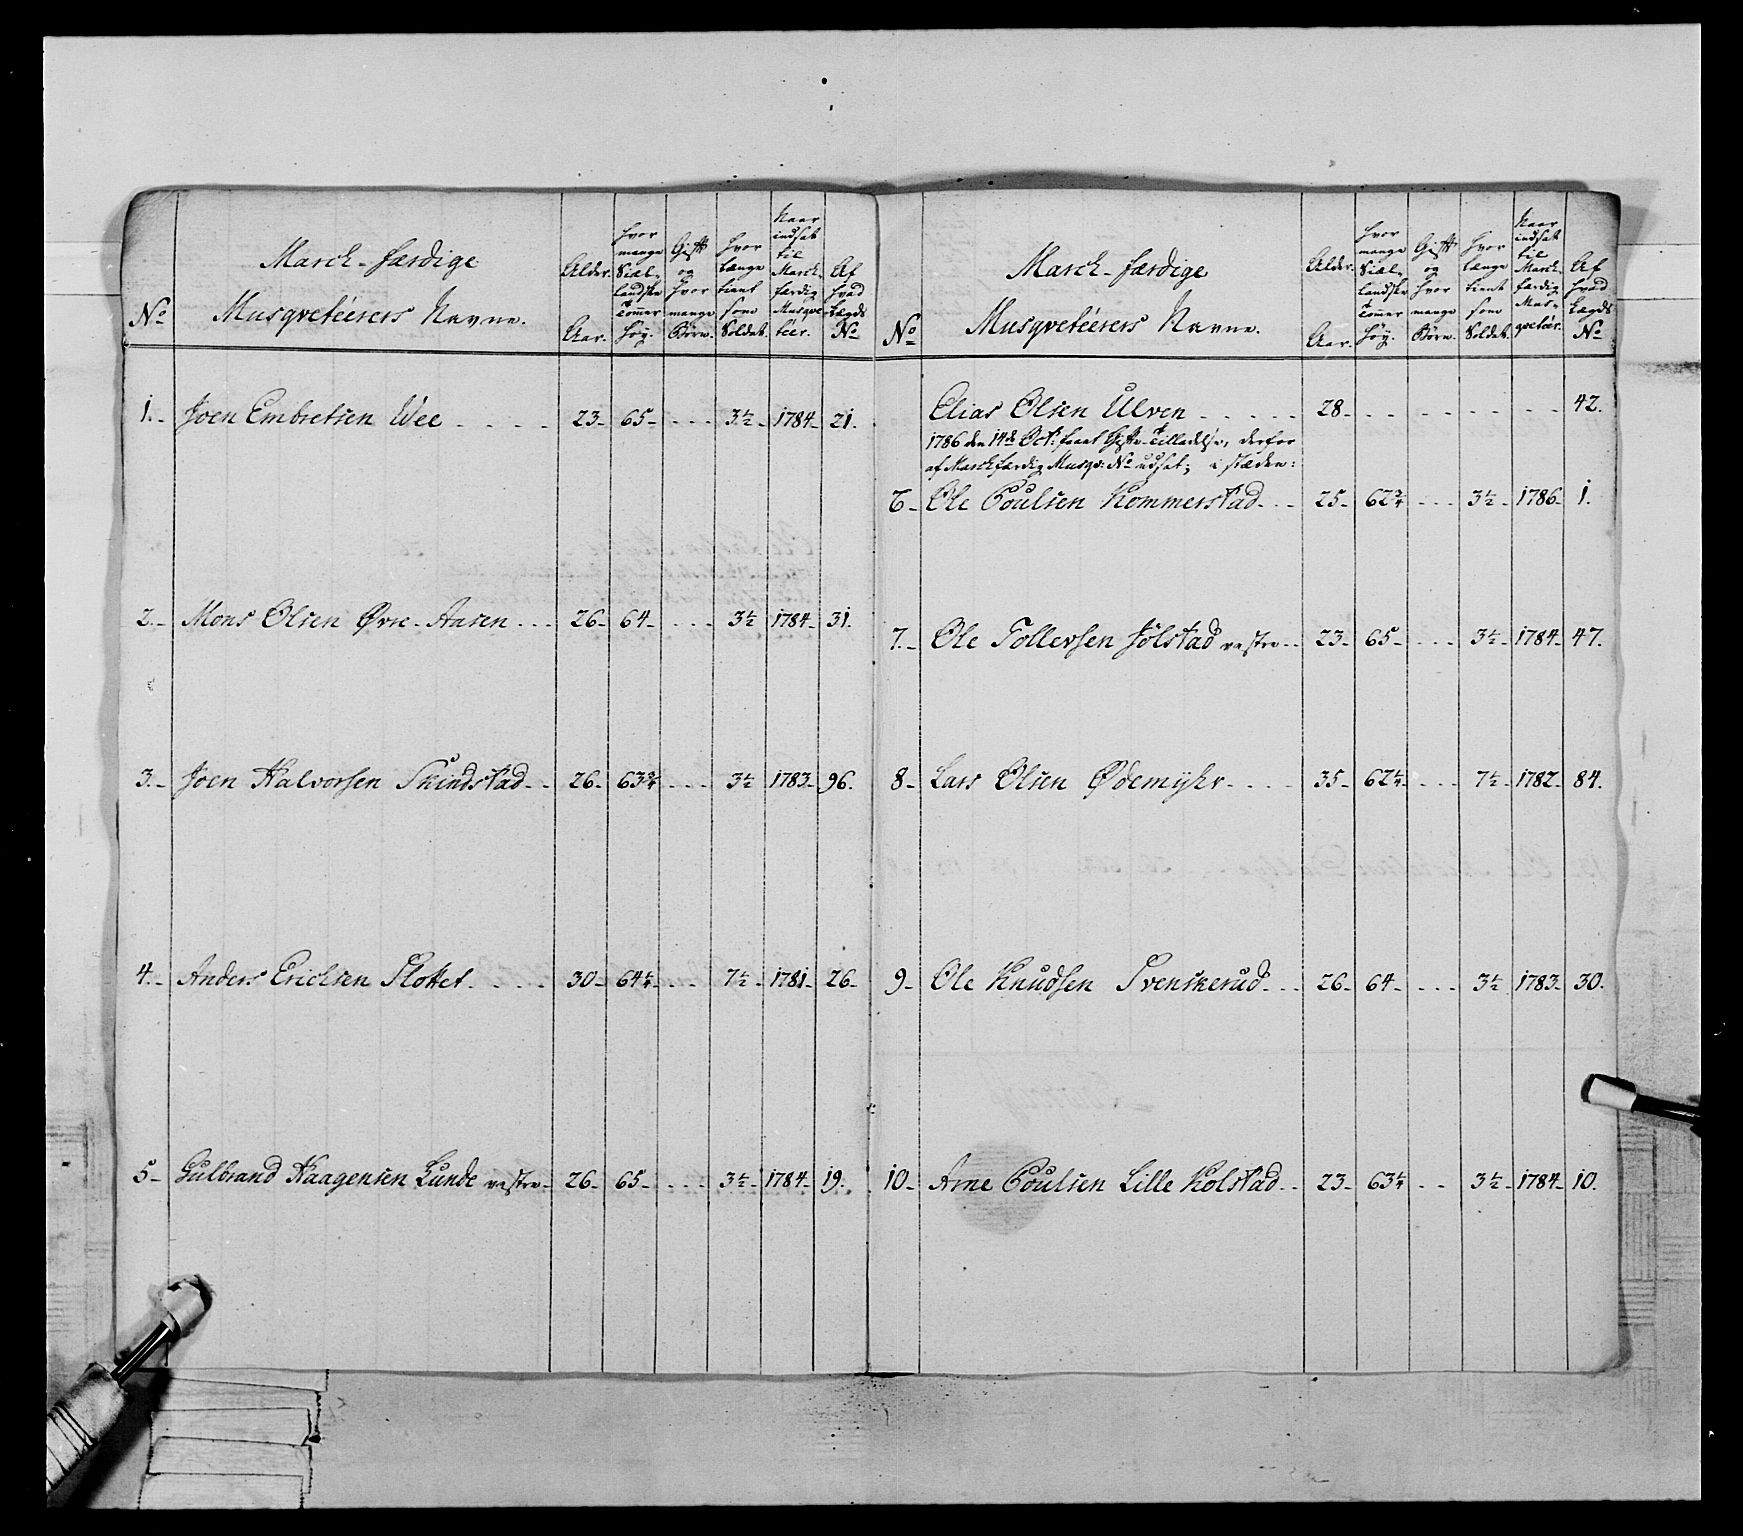 No
March-færdige
Musqveteerers Navne.
Alder. Aar.
hvor mange Siællandske Tommer høy.
Gift og hvor mange Børn.
hvor længe tient som Soldat.
Naar indsat til March-færdig Musqveteer.
Af hvad Lægds No
1. Joen Embretsen Wee 23 65 3½ 1784 21.
2. Mons Olsen Øvre Aasen 26 64 3½ 1784 31.
3. Joen Halvorsen Skindstad 26 63¾ 3½ 1783 96.
4. Anders Erichsen Slottet 30 64¼ 7½ 1781 26
5 Gulbrand Haagensen Lunde vestre 26 65 3½ 1784 19.
No
March-færdige
Musqveteerers Navne.
Alder. Aar.
hvor mange Siællandske Tommer høy.
Gift og hvor mange Børn.
hvor længe tient som Soldat.
Naar indsat til March-færdig Musqveteer.
Af hvad Lægds No
Elias Olsen Ulven 28 42.
1786 den 14de Oct: faaet Gifte-Tilladelse, derfor
af March færdig Musqv: No udsat; i stæden:
6 Ole Poulsen Kommerstad 25 62¾ 3½ 1786 1.
7. Ole Tollevsen Jølstad vestre 23 65 3½ 1784 47.
8 Lars Olsen Ødemyhr 35 62¼ 7½ 1782 84.
9 Ole Knudsen Svenskerud 26 64 3½ 1783 30.
10 Arne Poulsen Lille Kolstad 23 63¼ 3½ 1784 10.